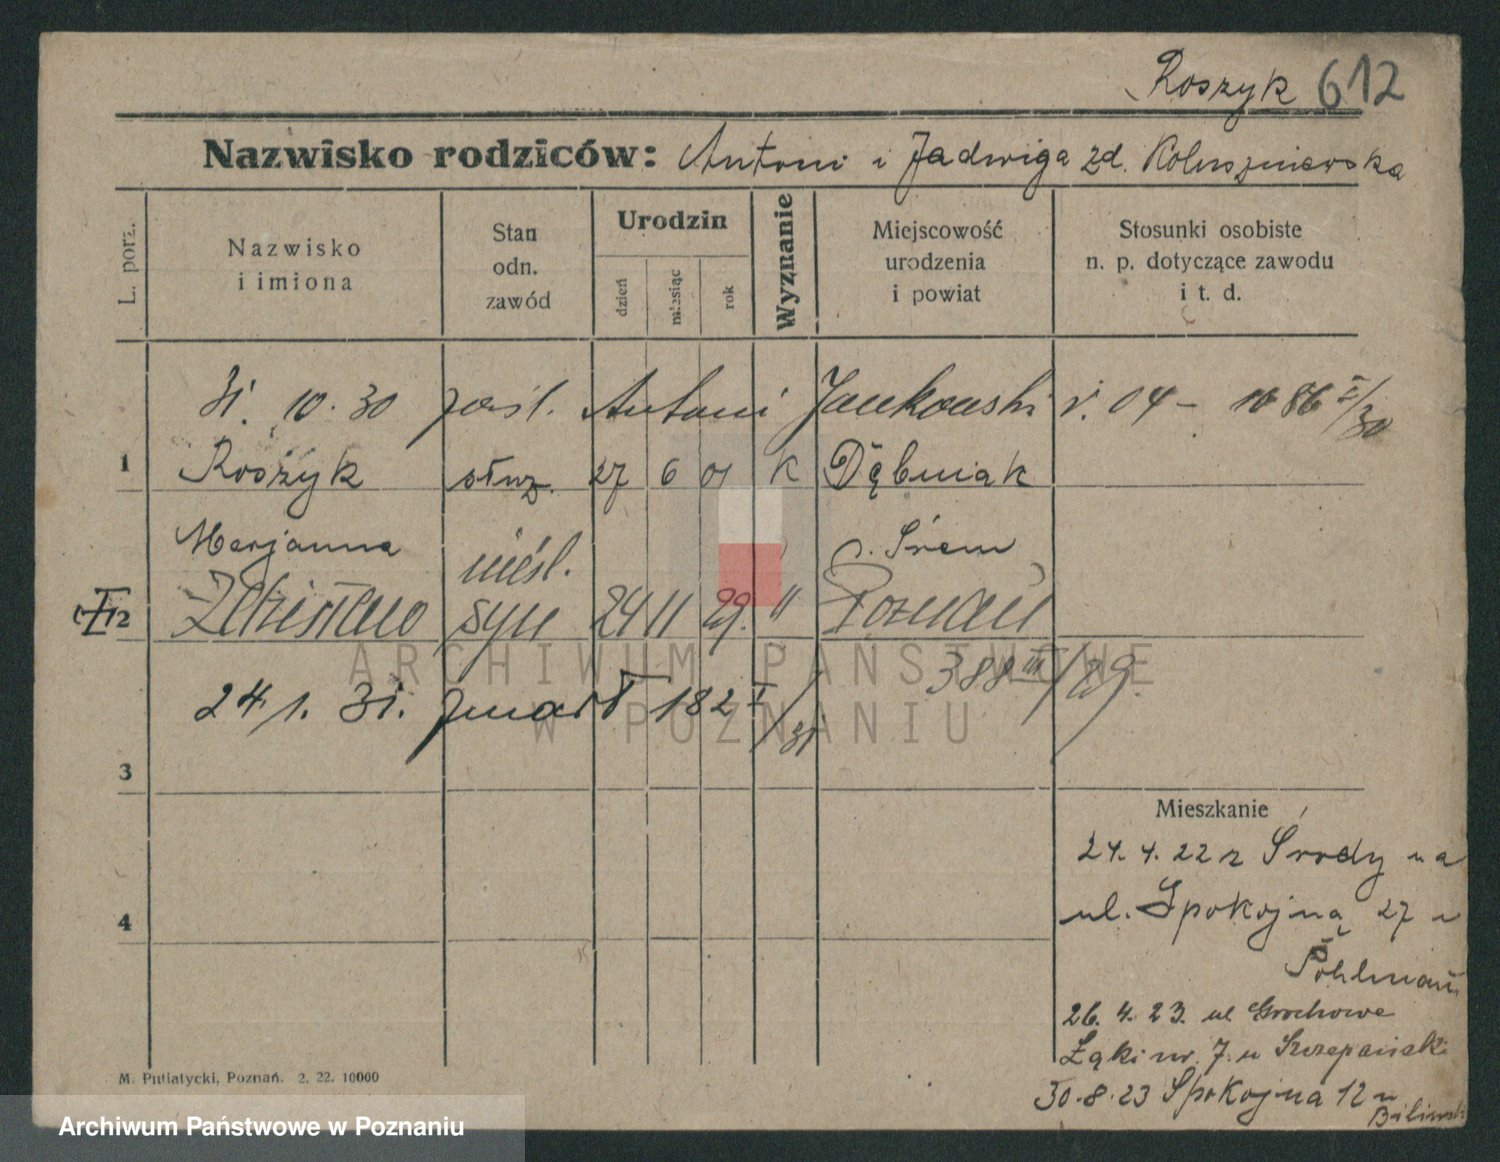 Roszyk 612
Nazwisko rodziców: Antoni i Jadwiga zd.
L. porz.
Nazwisko
i imiona
Stan
odn.
zawód
Urodzin
dzień
miesiąc
rok
Wyznanie
Miejscowość
urodzenia
i powiat
Stosunki osobiste
n. p. dotyczące zawodu
i t. d.
31. 10. 30 pośl. Antoni Jankowski r. 04 - 1086 I/30
1 Roszyk służ. 27 6 01 K Dębniak
Marjanna nieśl. p. Śrem
2 Zdzisław syn 24 11 29. " Poznań
388 III/29.
24. 1. 31. zmarł 182 I/31
3
Mieszkanie
24. 4. 22 z Środy na
4
ul. Spokojną 27 u
Pohlmann
26. 4. 23. ul Grochowe
Łąki nr. 7. u Szczepański
30. 8. 23 Spokojna 12 u
M. Putiatycki, Poznań. 2. 22. 10000
ARCHIWUM PAŃSTWOWE
W POZNANIU
Archiwum Państwowe w Poznaniu